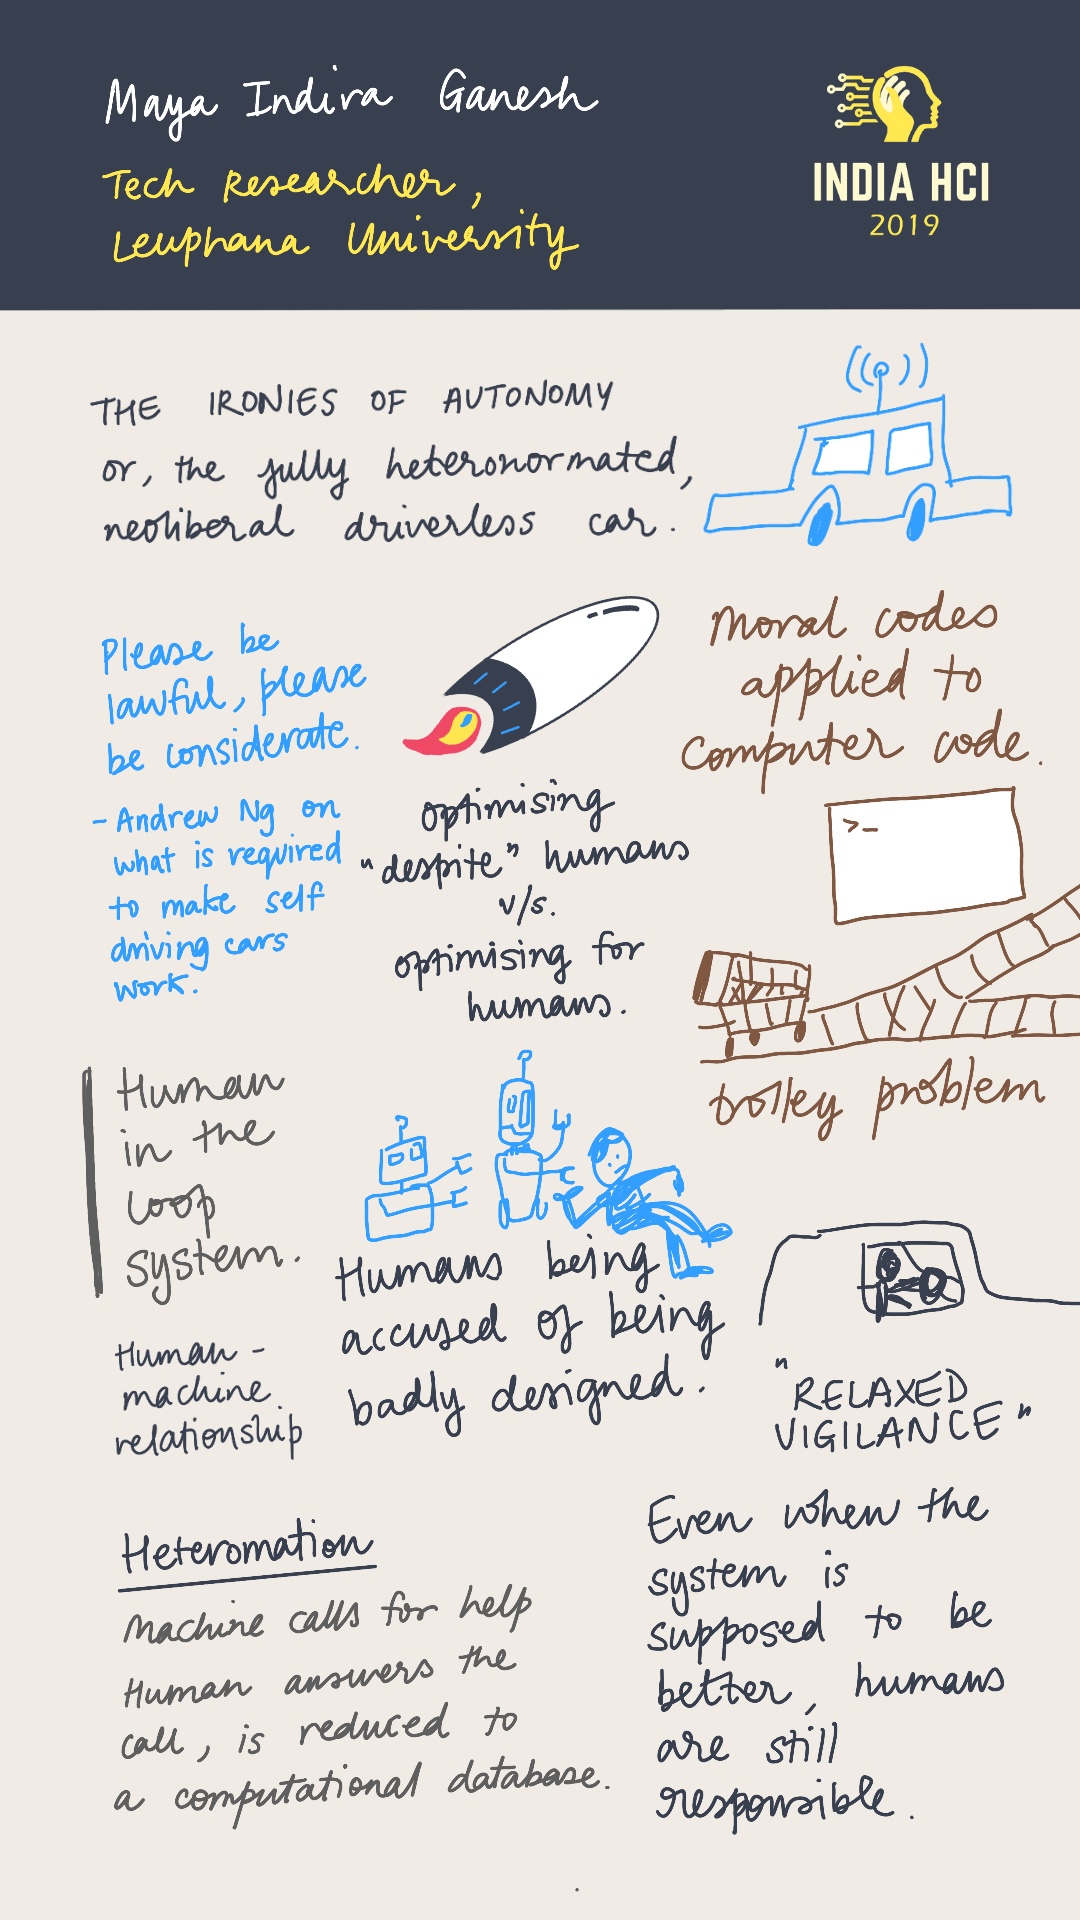 Maya Indira Ganesh
Tech Researcher,
Leuphana University
INDIA HCI
2019
THE IRONIES OF AUTONOMY
or, the fully heteronormated,
neoliberal driverless car.
Please be
lawful, please
be considerate.
- Andrew Ng on
what is required
to make self
driving cars
work.
optimising
"despite" humans
v/s.
optimising for
humans.
Moral codes
applied to
computer code.
>_
trolley problem
Human
in the
loop
system.
Human -
machine
relationship
Humans being
accused of being
badly designed.
"RELAXED
VIGILANCE"
Heteromation
Machine calls for help
Human answers the
call, is reduced to
a computational database.
Even when the
system is
supposed to be
better, humans
are still
responsible.